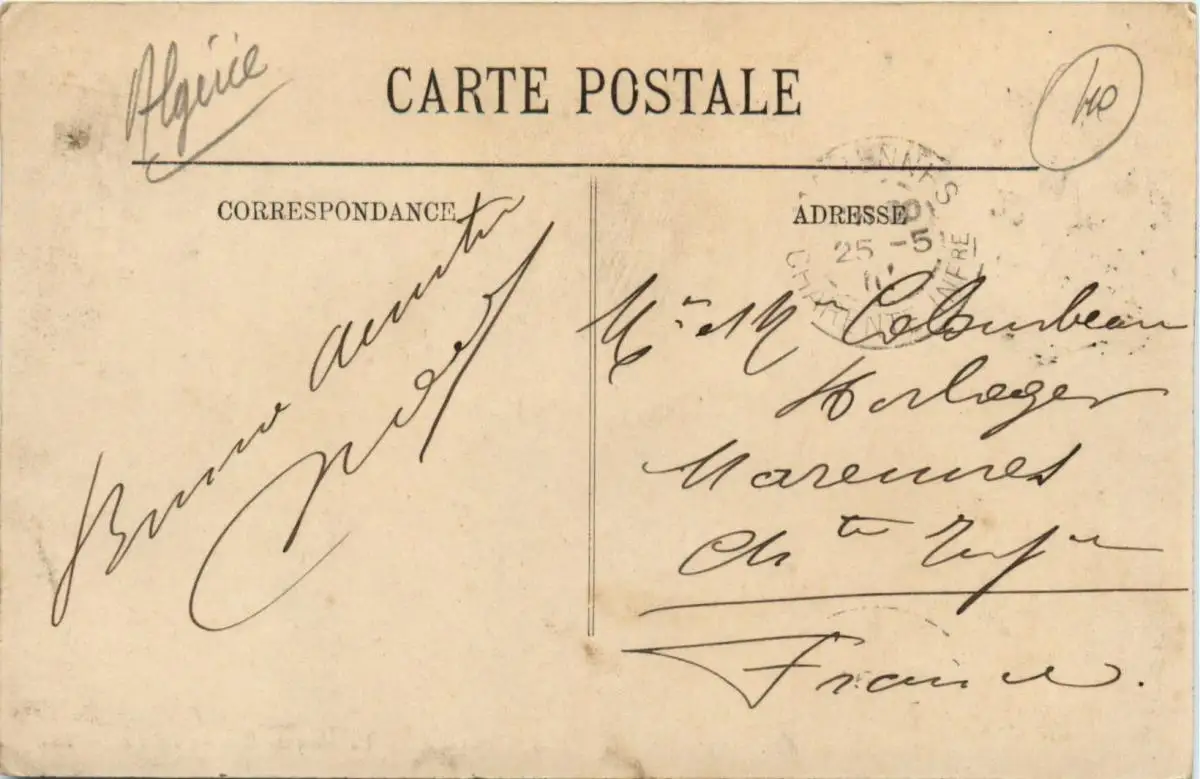 Algérie
CARTE POSTALE
40
CORRESPONDANCE
ADRESSE
Bonne amitié
MARENNES
25 -5
CHARENTE INFRE
Mr et Mme Colombeau
Horloger
Marennes
Chte Infre
France.